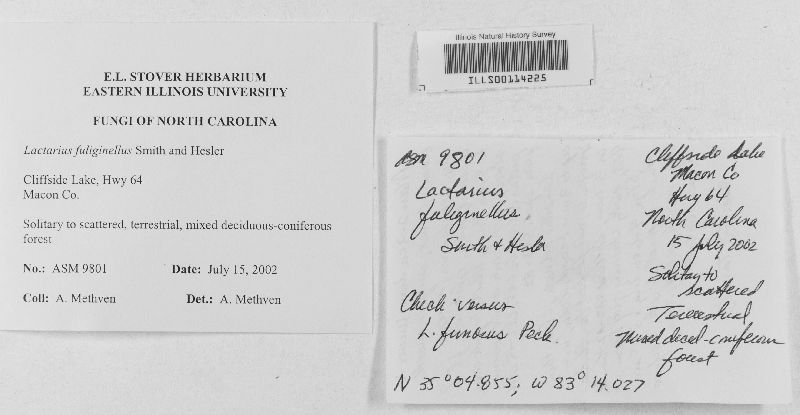 E.L. STOVER HERBARIUM
EASTERN ILLINOIS UNIVERSITY
FUNGI OF NORTH CAROLINA
Lactarius fuliginellus Smith and Hesler
Cliffside Lake, Hwy 64
Macon Co.
Solitary to scattered, terrestrial, mixed deciduous-coniferous
forest
No.: ASM 9801 Date: July 15, 2002
Coll: A. Methven Det.: A. Methven
Illinois Natural History Survey
ILLS00114225
asm 9801
Lactarius
fuliginellus
Smith & Hesler
Check versus
L. fumosus Peck.
Cliffside Lake
Macon Co
Hwy 64
North Carolina
15 July 2002
Solitary to
scattered
Terrestrial
Mixed decid-coniferous
forest
N 35° 04.855; W 83° 14.027